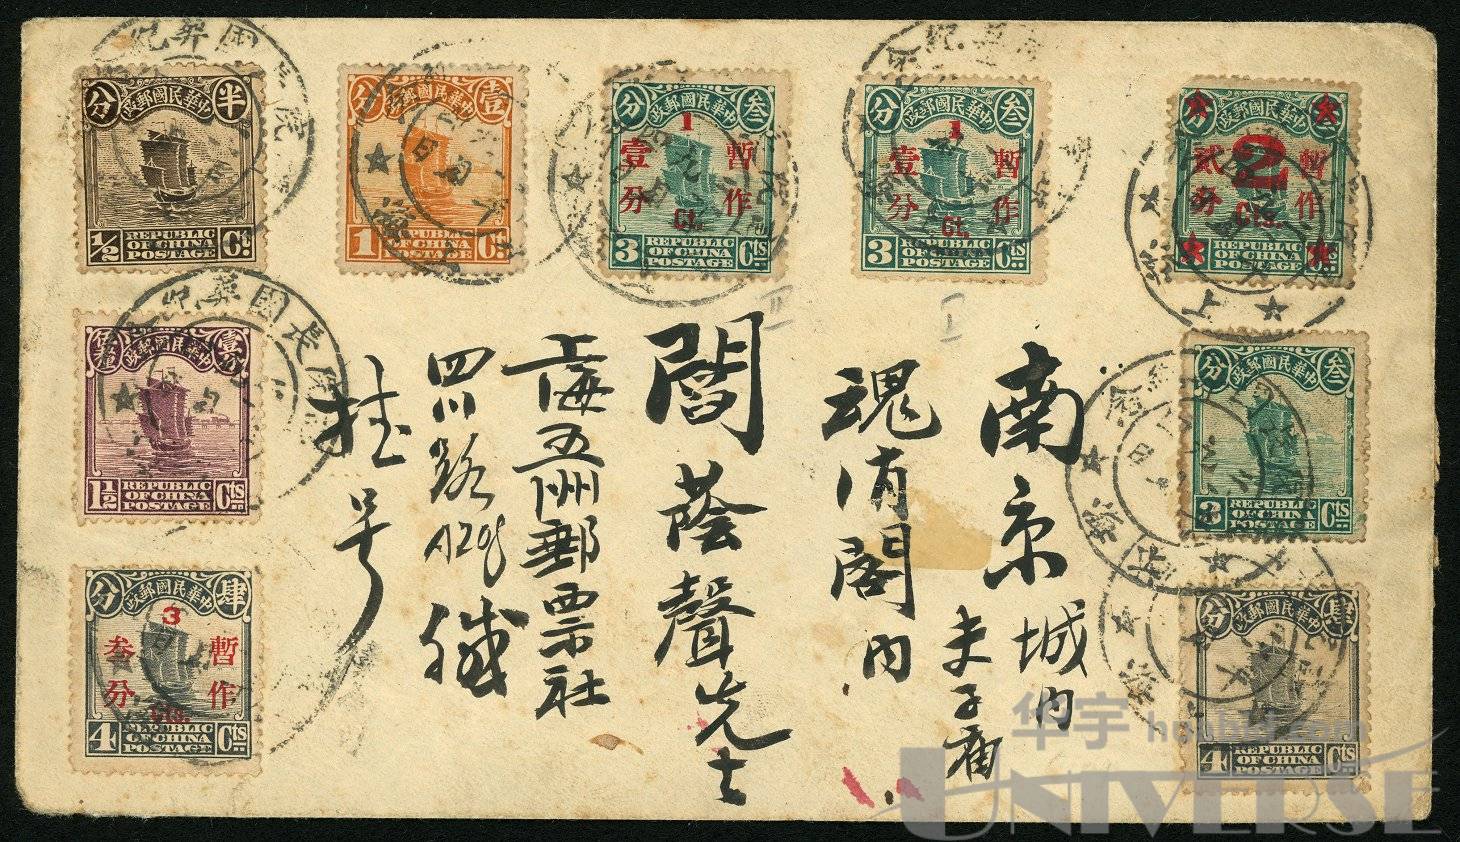 南京城内夫子庙
魂消閣内
閻蔭聲先生
上海五洲郵票社
四川路A208 緘
挂号
分 半
中華民國郵政
1/2 REPUBLIC OF CHINA POSTAGE Ct
分 壹
中華民國郵政
1 REPUBLIC OF CHINA POSTAGE Ct
分 叁
中華民國郵政
1
暫作
壹分
Ct.
3 REPUBLIC OF CHINA POSTAGE Cts
分 叁
中華民國郵政
1
暫作
壹分
Ct.
3 REPUBLIC OF CHINA POSTAGE Cts
中華民國郵政
2
暫作
貳分
Cts.
REPUBLIC OF CHINA POSTAGE
中華民國郵政
1½ REPUBLIC OF CHINA POSTAGE Cts
分 叁
中華民國郵政
3 REPUBLIC OF CHINA POSTAGE Cts
分 肆
中華民國郵政
3
暫作
叁分
Cts.
4 REPUBLIC OF CHINA POSTAGE Cts
分 肆
中華民國郵政
4 REPUBLIC OF CHINA POSTAGE Cts
II
I
华宇 hnybid.com
UNIVERSE